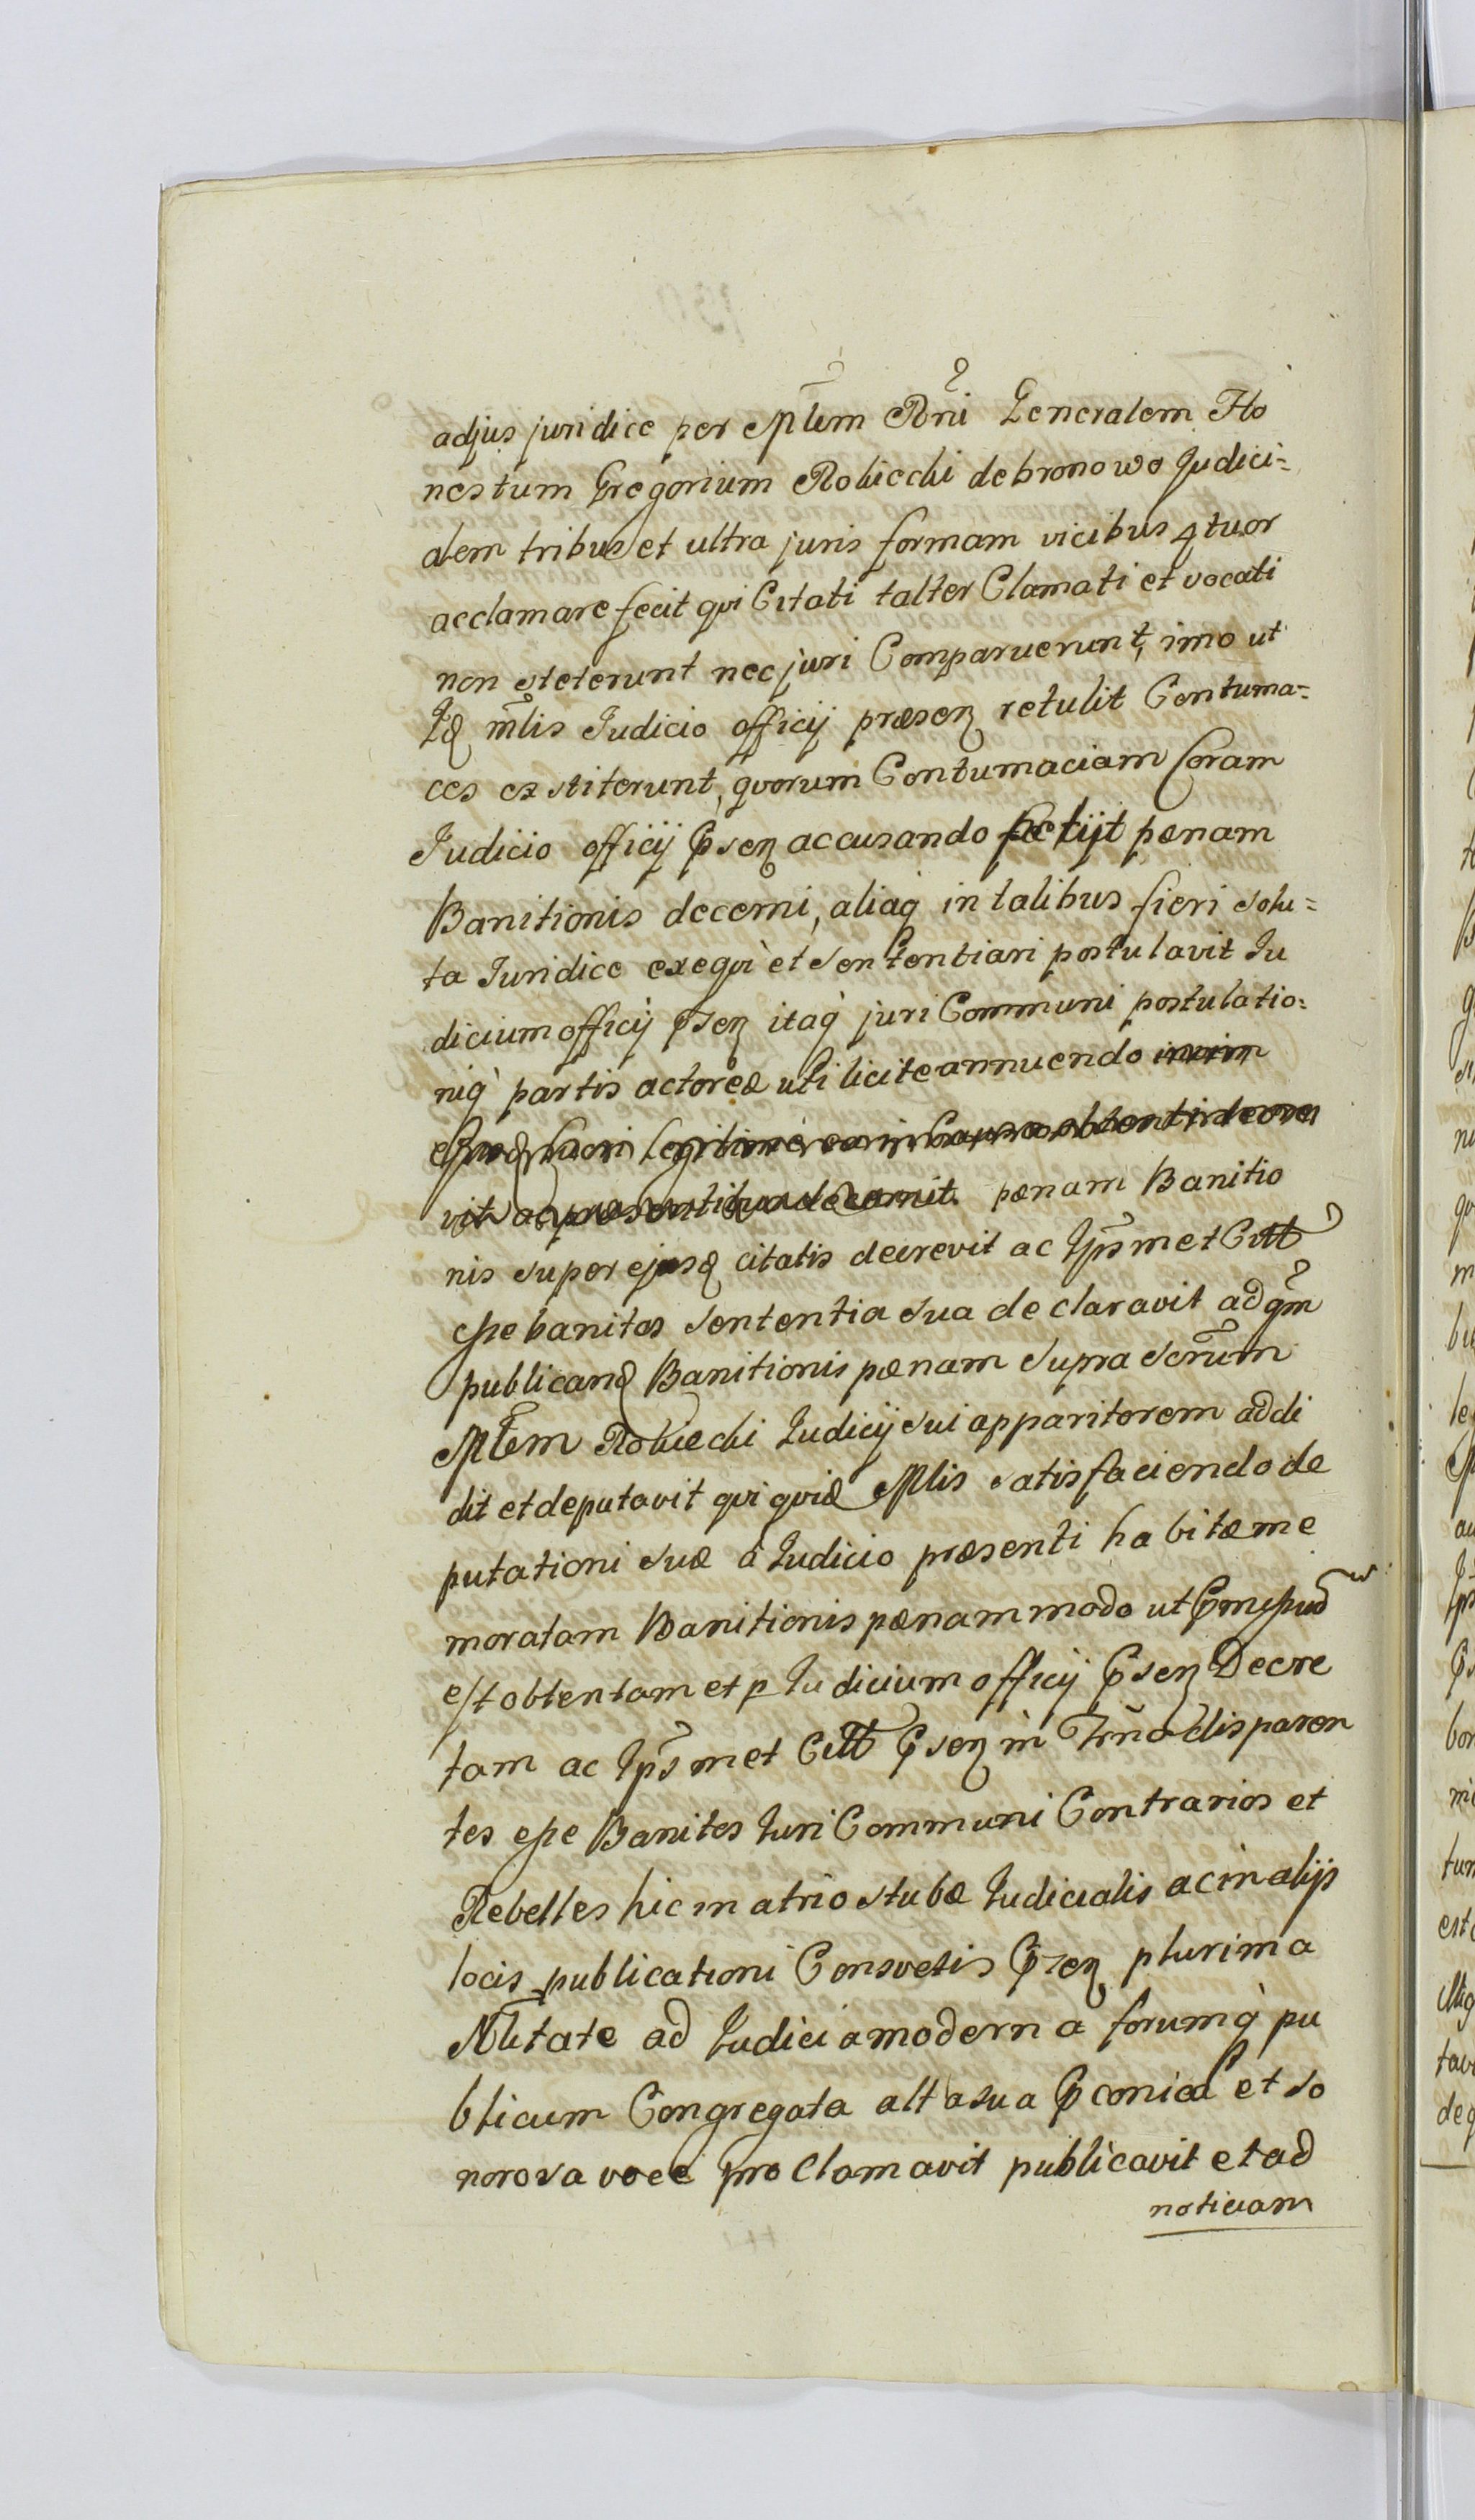 adjus juridice per Mltem Rni Generalem Ho
nestum Gregorium Robiecchi de bronowo Judici=
alem tribus et ultra juris formam vicibus 4tuor
acclamare fecit qvi Citati talter Clamati et vocati
non steterunt nec juri Comparuerunt, imo ut
Id mlis Judicio officij præsen retulit Contuma=
ces exstiterunt, qvorum Contumaciam Coram
Judicio officij Psen accusando petijt pœnam
Banitionis decerni, aliaq in talibus fieri solu=
ta Juridice exeqvi et Sententiari postulavit Ju
dicium officij Psen itaq juri Communi postulatio=
niq partis actoreæ uti licite annuendo
pœnam Banitio
nis super ejusd citatis decrevit ac Ipsmet Citt
esse banitos sententia sua declaravit ad qm
publicand Banitionis pœnam supra scrum
Mltem Robiecchi Judicij sui apparitorem addi
dit et deputavit qvi qvid Mlis satisfaciendo de
putationi suæ a Judicio præsenti habitæ me
moratam Banitionis pœnam modo ut
est obtentam et p Judicium officij Psen Decre
tam ac Ipsmet Citt Psen in Trno disparen
tes esse Banitos Juri Communi Contrarios et
Rebelles hic in atrio stubæ Judicialis ac in alijs
locis publicationi Consvetis Psen plurima
Nlitate ad Judicia moderna forumq pu
blicum Congregata alta sua Pconica et so
norosa voce proclamavit publicavit et ad
noticiam